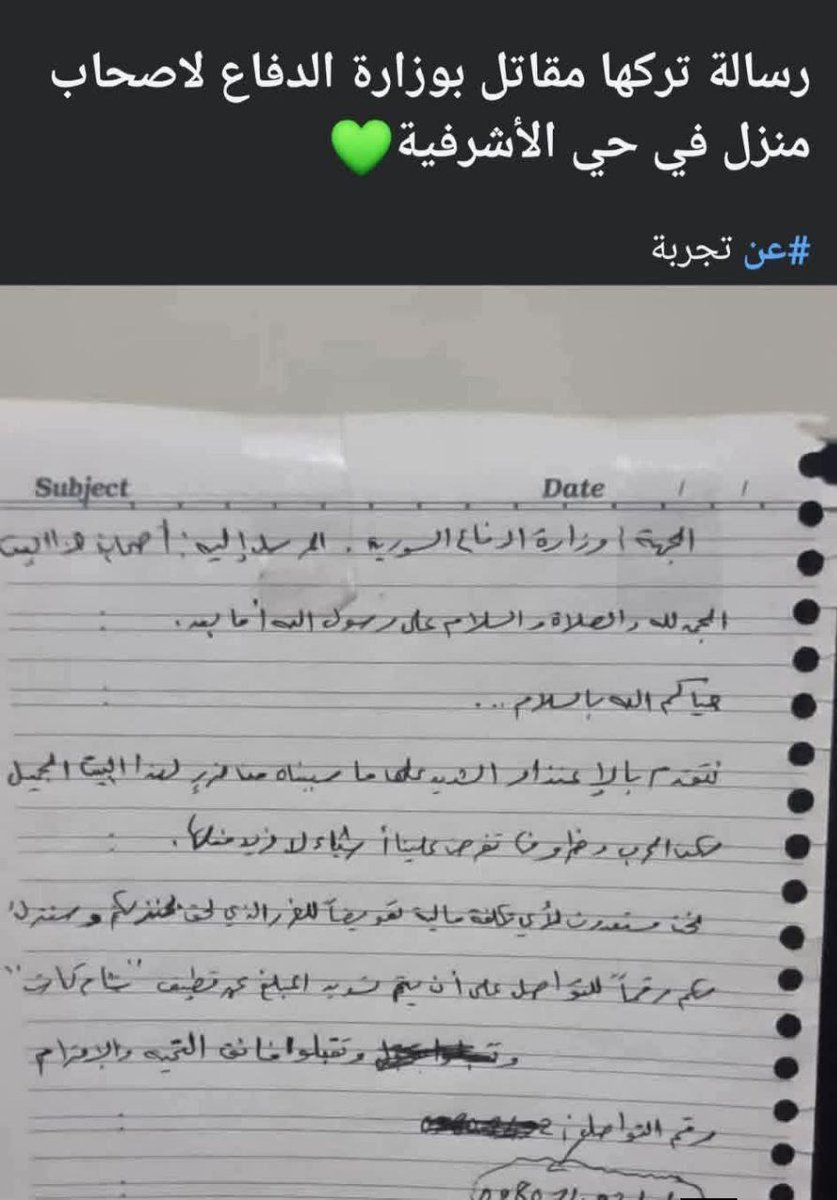 رسالة تركها مقاتل بوزارة الدفاع لاصحاب
منزل في حي الأشرفية💚
#عن تجربة
Subject Date / /
الجهة / وزارة الدفاع السورية . المرسل إليه : أصحاب هذا البيت
الحمد لله والصلاة والسلام على رسول الله أما بعد .
حياكم الله بالسلام ...
نتقدم بالإعتذار الشديد على ما سببناه من ضرر لهذا البيت الجميل
لكن الحرب وظروفا تفرض علينا أشياء لا نريد فعلها .
نحن مستعدون لأي تكلفة مالية تعويضاً للضرر الذي لحق بمنزلكم وسنترك
لكم رقماً للتواصل على أن يتم تسديد المبلغ عن تطبيق "شام كاش"
وتقبلوا فائق التحية والإحترام
رقم التواصل :